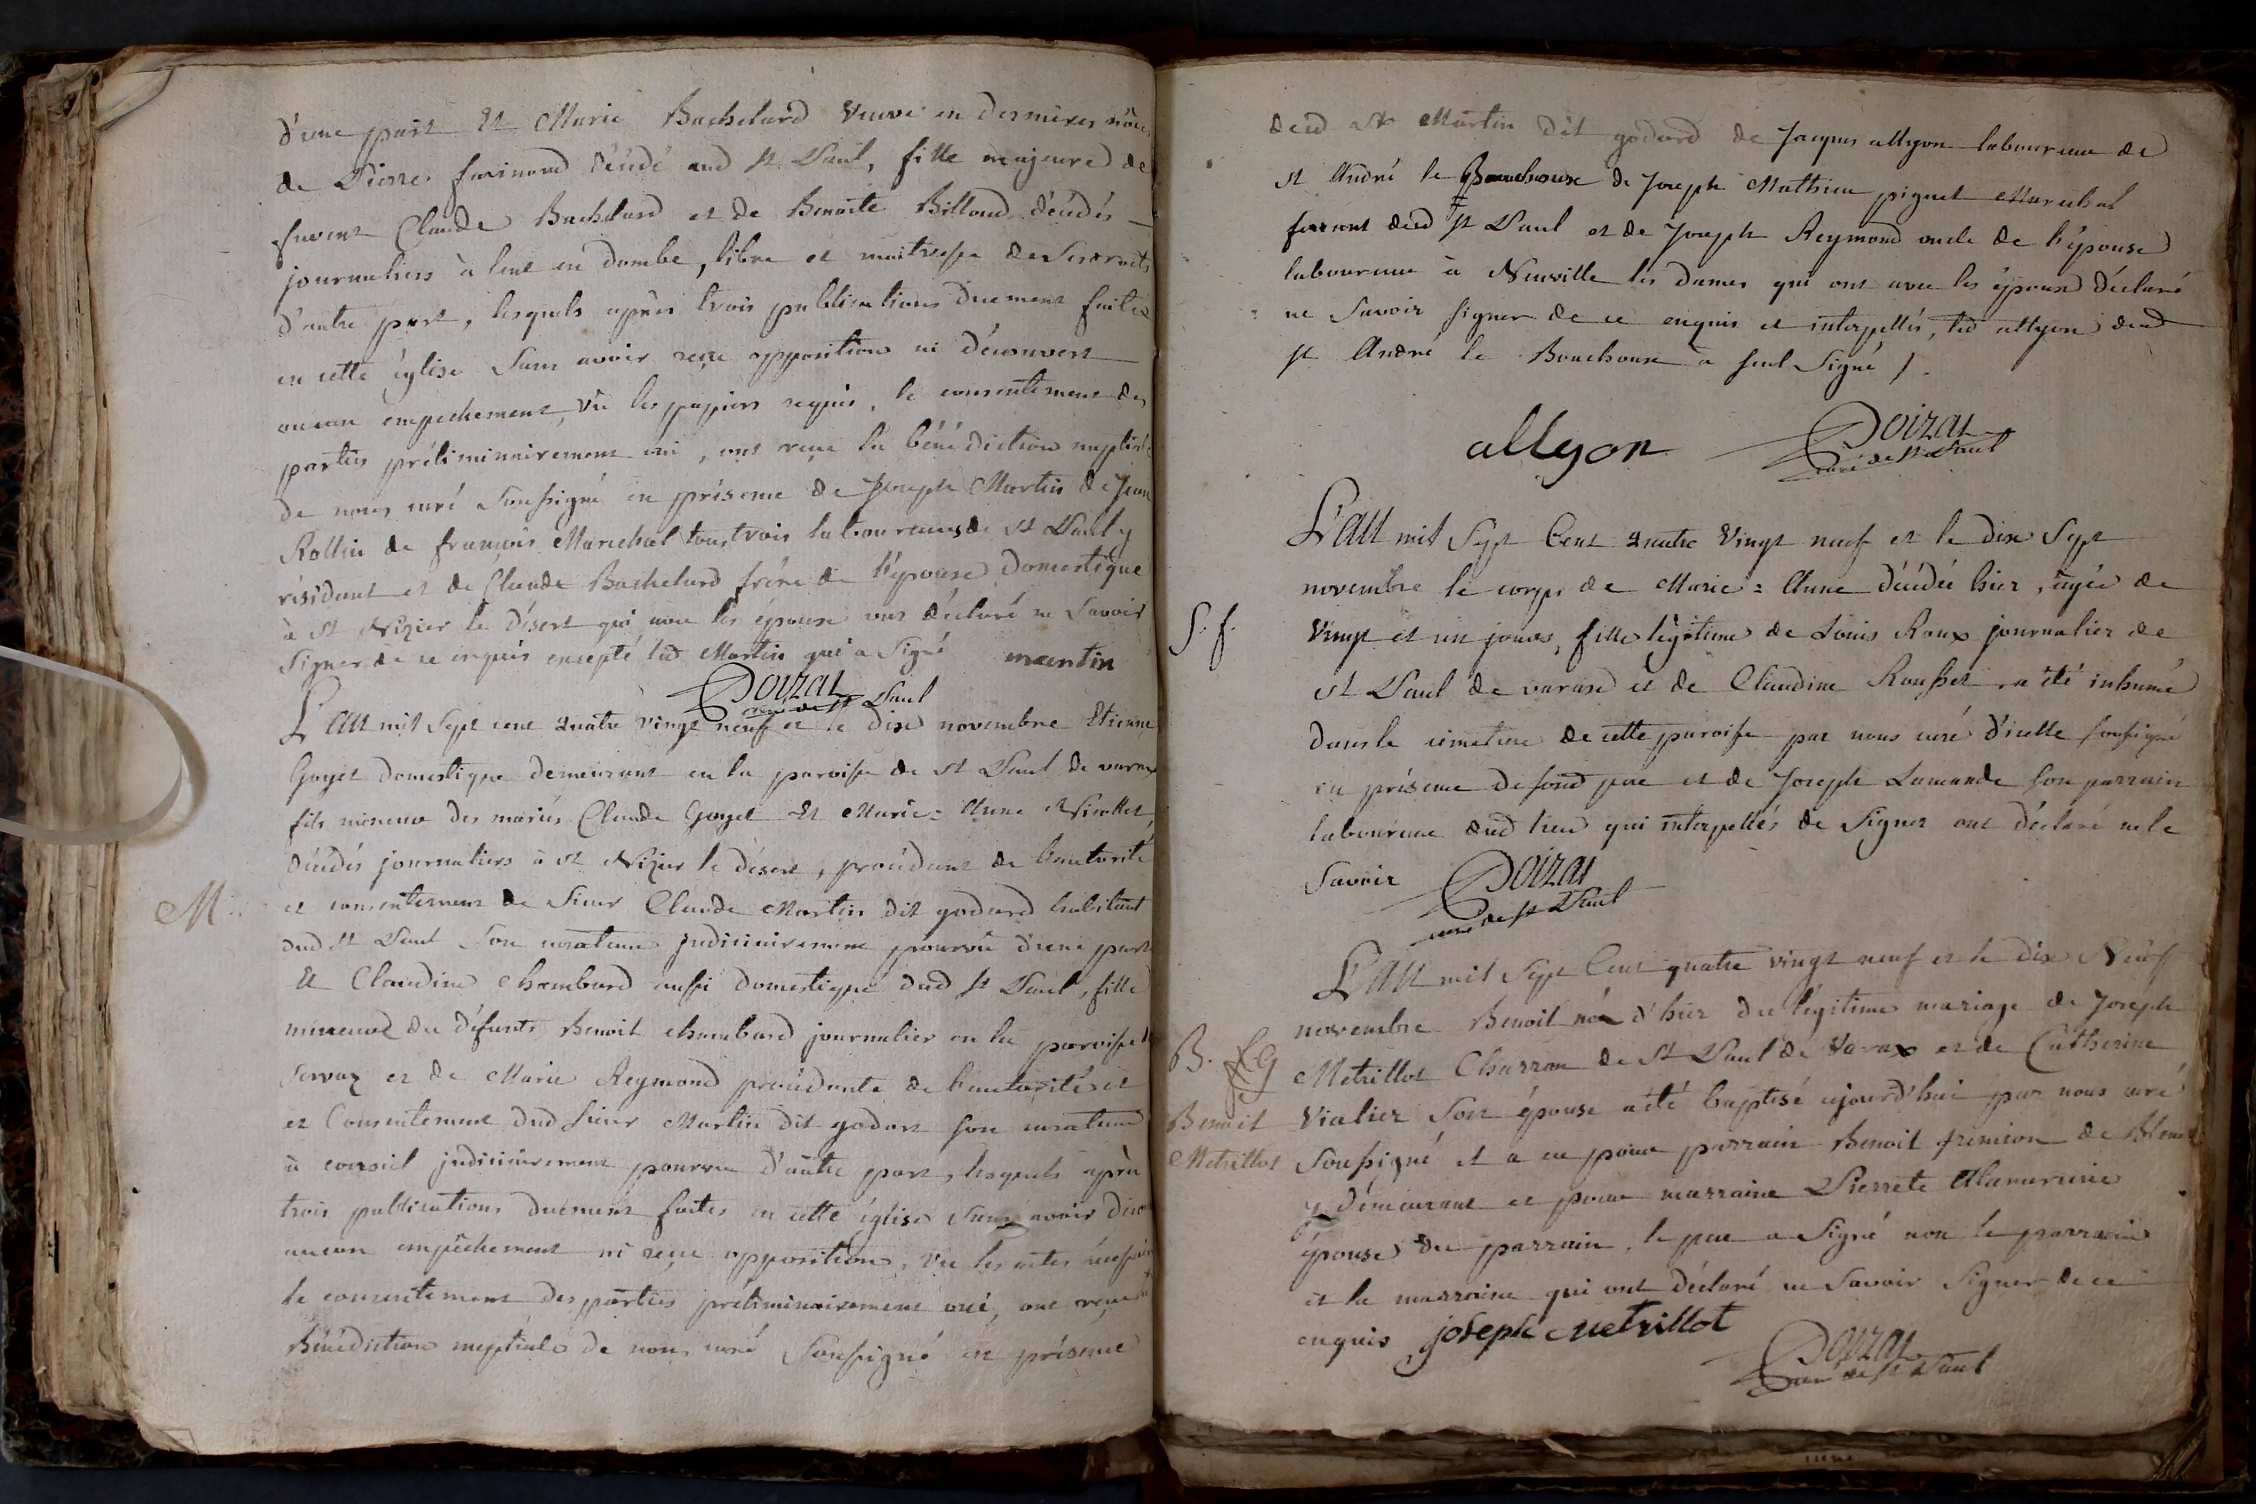 d'une part Et Marie Bachelard veuve en dernieres nôces
de Pierre décédé aud St Paul, fille majeure de
furent Claude Bachelard et de Benoite Billoud décédés
journaliers à lent en dombe, libre et maitresse de ses droits
d'autre part, lesquels après trois publications duement faites
en cette église sans avoir reçu opposition ni découvert
aucun empechement, vu les papiers requis, le consentement des
parties préliminairement oui, ont reçu la bénédiction nuptiale
de nous curé soussigné en présence de Joseph Martin de Jean
Rollin de françois Marechal tous trois laboureurs de St Paul y
résidant et de Claude Bachelard frère de l'épouse domestique
à St Nizier le désert qui avec les époux ont déclaré ne savoir
signer de ce enquis excepté led Martin qui a signé martin
Poizat curé de St Paul
L'an mil sept cent quatre vingt neuf et le dix novembre Etienne
Goyet domestique demeurant en la paroisse de St Paul de varax
fils mineur des mariés Claude Goyet Et Marie=Anne Nicollet,
décédés journaliers à St Nizier le désert, procédant de l'autorité
M.
et consentement de Sieur Claude Martin dit godard habitant
dud St Paul son curateur judiciairement pourvu d'une part
Et Claudine Chambard aussi domestique dud St Paul, fille
mineure de défunts Benoit Chambard journalier en la paroisse de
Servaz et de Marie Reymond procédante de l'autorité et
et Consentement dud sieur Martin dit godard son curateur
à conseil judiciairement pourvu d'autre part, lesquels après
trois publications duement faites en cette église sans avoir
aucun empêchement ni reçu opposition, vu les actes
le consentement des parties préliminairement oui, ont reçu
Bénédiction nuptiale de nous curé soussigné en présence
dud Sr Martin dit godard de Jaques allyon laboureur de
St André le Bouchoux de Joseph Mathieu piguet Marechal
ferrant dud St Paul et de Joseph Reymond oncle de l'épouse
laboureur à Neuville les dames qui ont avec les époux déclaré
ne savoir signer de ce enquis et interpellés, led allyon dud
St André le Bouchoux a seul signé /.
allyon Poizat
curé de St Paul
L'an mil sept Cent quatre vingt neuf et le dix sept
novembre le corps de Marie=Anne décédée hier, agée de
S. f.
vingt et un jours, fille légitime de Louis Roux journalier de
St Paul de varax et de Claudine Rousset, a été inhumé
dans le cimetiere de cette paroisse par nous curé d'icelle soussigné
en présence de sond pere et de Joseph Lamande son parrain
laboureur dud lieu qui interpellés de signer ont déclaré ne le
savoir Poizat
curé de St Paul
L'an mil sept Cent quatre vingt neuf et le dix Neuf
novembre Benoit né d'hier du légitime mariage de Joseph
B.
Metrillot Charron de St Paul de varax et de Catherine
Benoit
Metrillot
Vialier son épouse a été baptisé ajourd'hui par nous curé
soussigné et a eu pour parrain Benoit de
y démeurant et pour marraine Pierrete
épouse du parrain, le pere a signé non le parrain
et la marraine qui ont déclaré ne savoir signer de ce
enquis joseph metrillot
Poizat
curé de St Paul